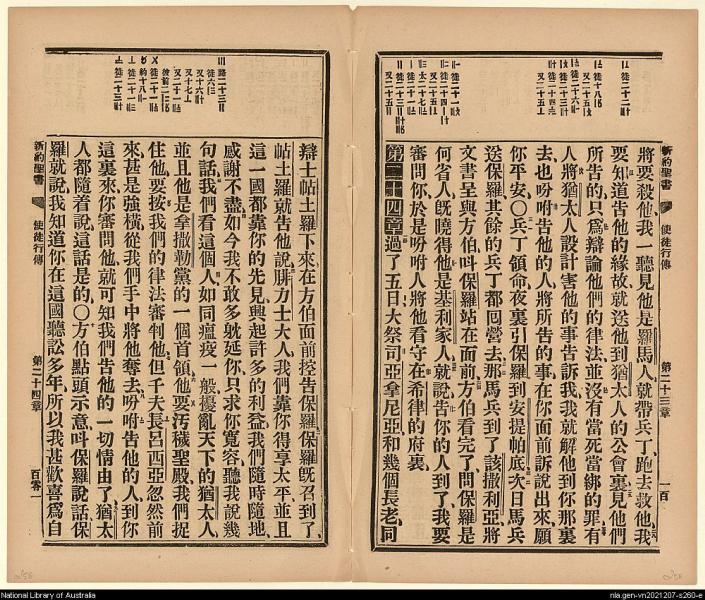 新約聖書
使徒行傳
第二十三章
一百
將要殺他、我一聽見他是羅馬人、就帶兵丁跑去救他、我
要知道告他的緣故、就送他到猶太人的公會裏、見他們
所告的、只爲辯論他們的律法、並沒有當死當綁的罪、有
人將猶太人設計害他的事告訴我、我就解他到你那裏
去、也吩咐告他的人、將所告的事、在你面前訴說出來、願
你平安○兵丁領命、夜裏引保羅到安提帕底、次日馬兵
送保羅、其餘的兵丁都囘營去、那馬兵到了該撒利亞、將
文書呈與方伯、呌保羅站在面前、方伯看完了、問保羅是
何省人、旣曉得他是基利家人、就說、告你的人到了、我要
審問你、於是吩咐人將他看守在希律的府裏、
第二十四章 過了五日、大祭司亞拿尼亞、和幾個長老、同
辯士帖土羅下來、在方伯面前控告保羅、保羅旣召到了、
帖土羅就告他說、腓力士大人、我們靠你得享太平、並且
這一國都靠你的先見、興起許多的利益、我們隨時隨地、
感謝不盡、如今我不敢多躭延你、只求你寬容聽我說幾
句話、我們看這個人、如同瘟疫一般、擾亂天下的猶太人、
並且他是拿撒勒黨的一個首領、他要汚穢聖殿、我們捉
住他、要按我們的律法審判他、但千夫長呂西亞忽然前
來、甚是強橫、從我們手中將他奪去、吩咐告他的人到你
這裏來、你審問他、就可知我們告他的一切情由了、猶太
人都隨着說、這話是的○方伯點頭示意、呌保羅說話、保
羅就說、我知道你在這國聽訟多年、所以我甚歡喜爲自
新約聖書
使徒行傳
第二十四章
百零一
National Library of Australia
nla.gen-vn2021207-s260-e